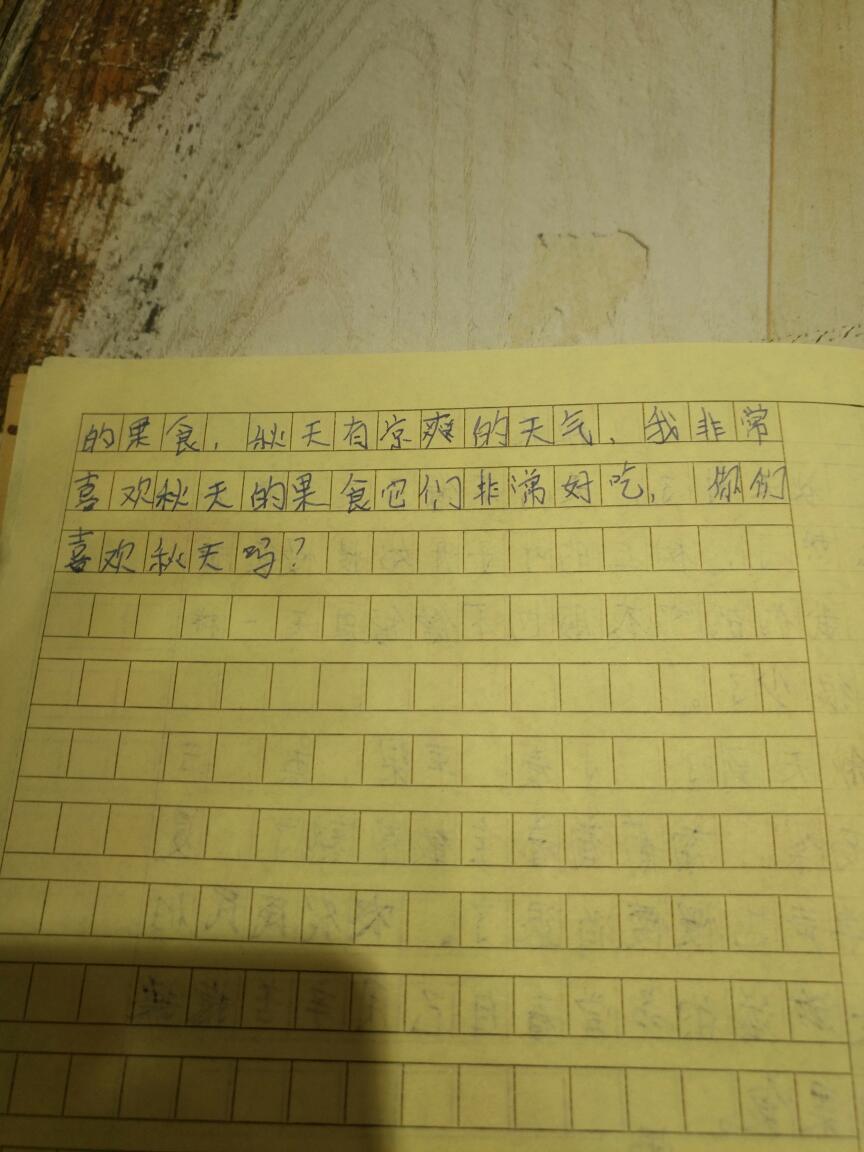 的果食，秋天有凉爽的天气，我非常
喜欢秋天的果食它们非常好吃，你们
喜欢秋天吗？